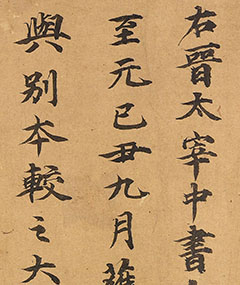 右晉太宰中書
至元己丑九月
與別本較之大